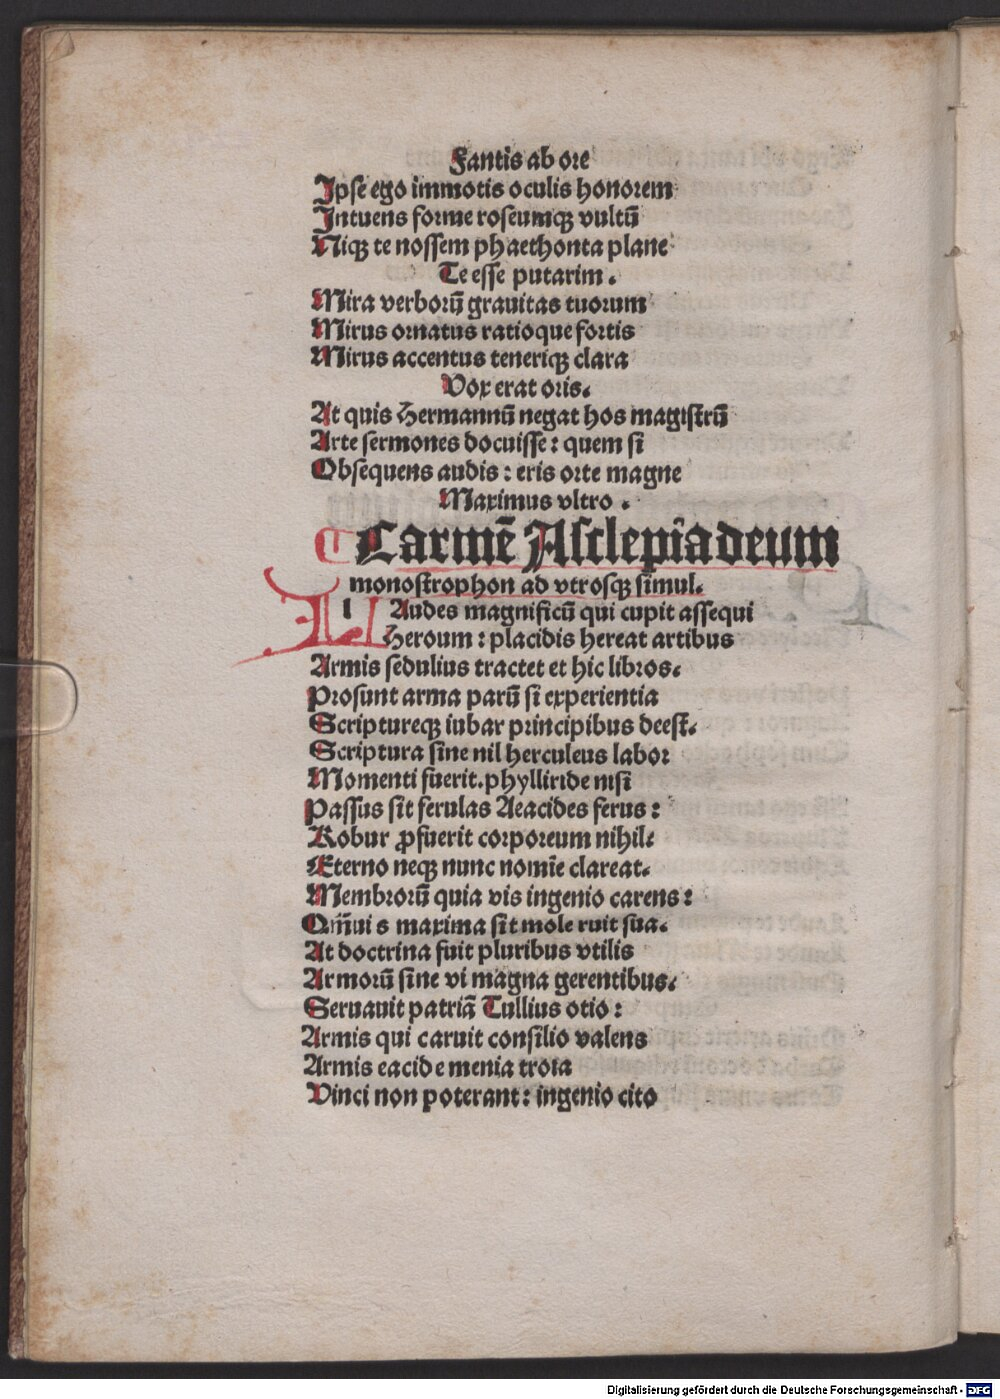 Fantis ab ore
Ipse ego immotis oculis honorem
Intuens forme roseumqꝫ vultū
Niqꝫ te nossem phaethonta plane
Te esse putarim.
Mira verborū grauitas tuorum
Mirus ornatus ratioque fortis
Mirus accentus teneriqꝫ clara
Vox erat oris.
At quis Hermannū negat hos magistrū
Arte sermones docuisse: quem si
Obsequens audis: eris orte magne
Maximus vltro.
Carmē Asclepiadeum
monostrophon ad vtrosqꝫ simul.
l Audes magnificū qui cupit assequi
Heroum: placidis hereat artibus
Armis sedulius tractet et hic libros.
Prosunt arma parū si experientia
Scriptureqꝫ iubar principibus deest.
Scriptura sine nil herculeus labor
Momenti fuerit. phylliride nisi
Passus sit ferulas Aeacides ferus:
Robur ꝓfuerit corporeum nihil.
Eterno neqꝫ nunc nomīe clareat.
Membrorū quia vis ingenio carens:
Qm̄ui s maxima sit mole ruit sua.
At doctrina fuit pluribus vtilis
Armorū sine vi magna gerentibus.
Seruauit patriā Tullius otio:
Armis qui caruit consilio valens
Armis eacide menia troia
Vinci non poterant: ingenio cito
Digitalisierung gefördert durch die Deutsche Forschungsgemeinschaft - DFG